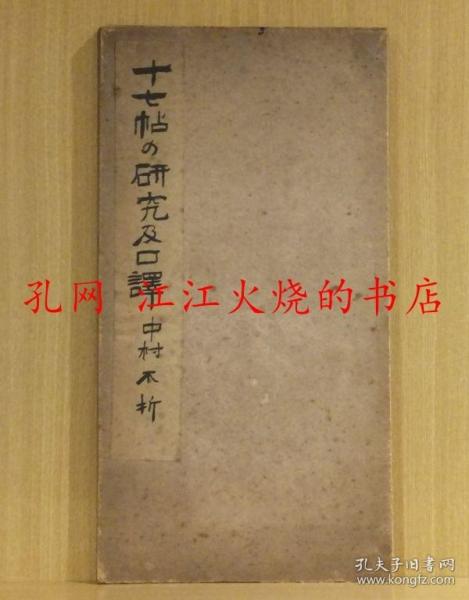 十七帖の研究及口譯 中村不折
孔网 江江火烧的书店
孔夫子旧书网
www.kongfz.com